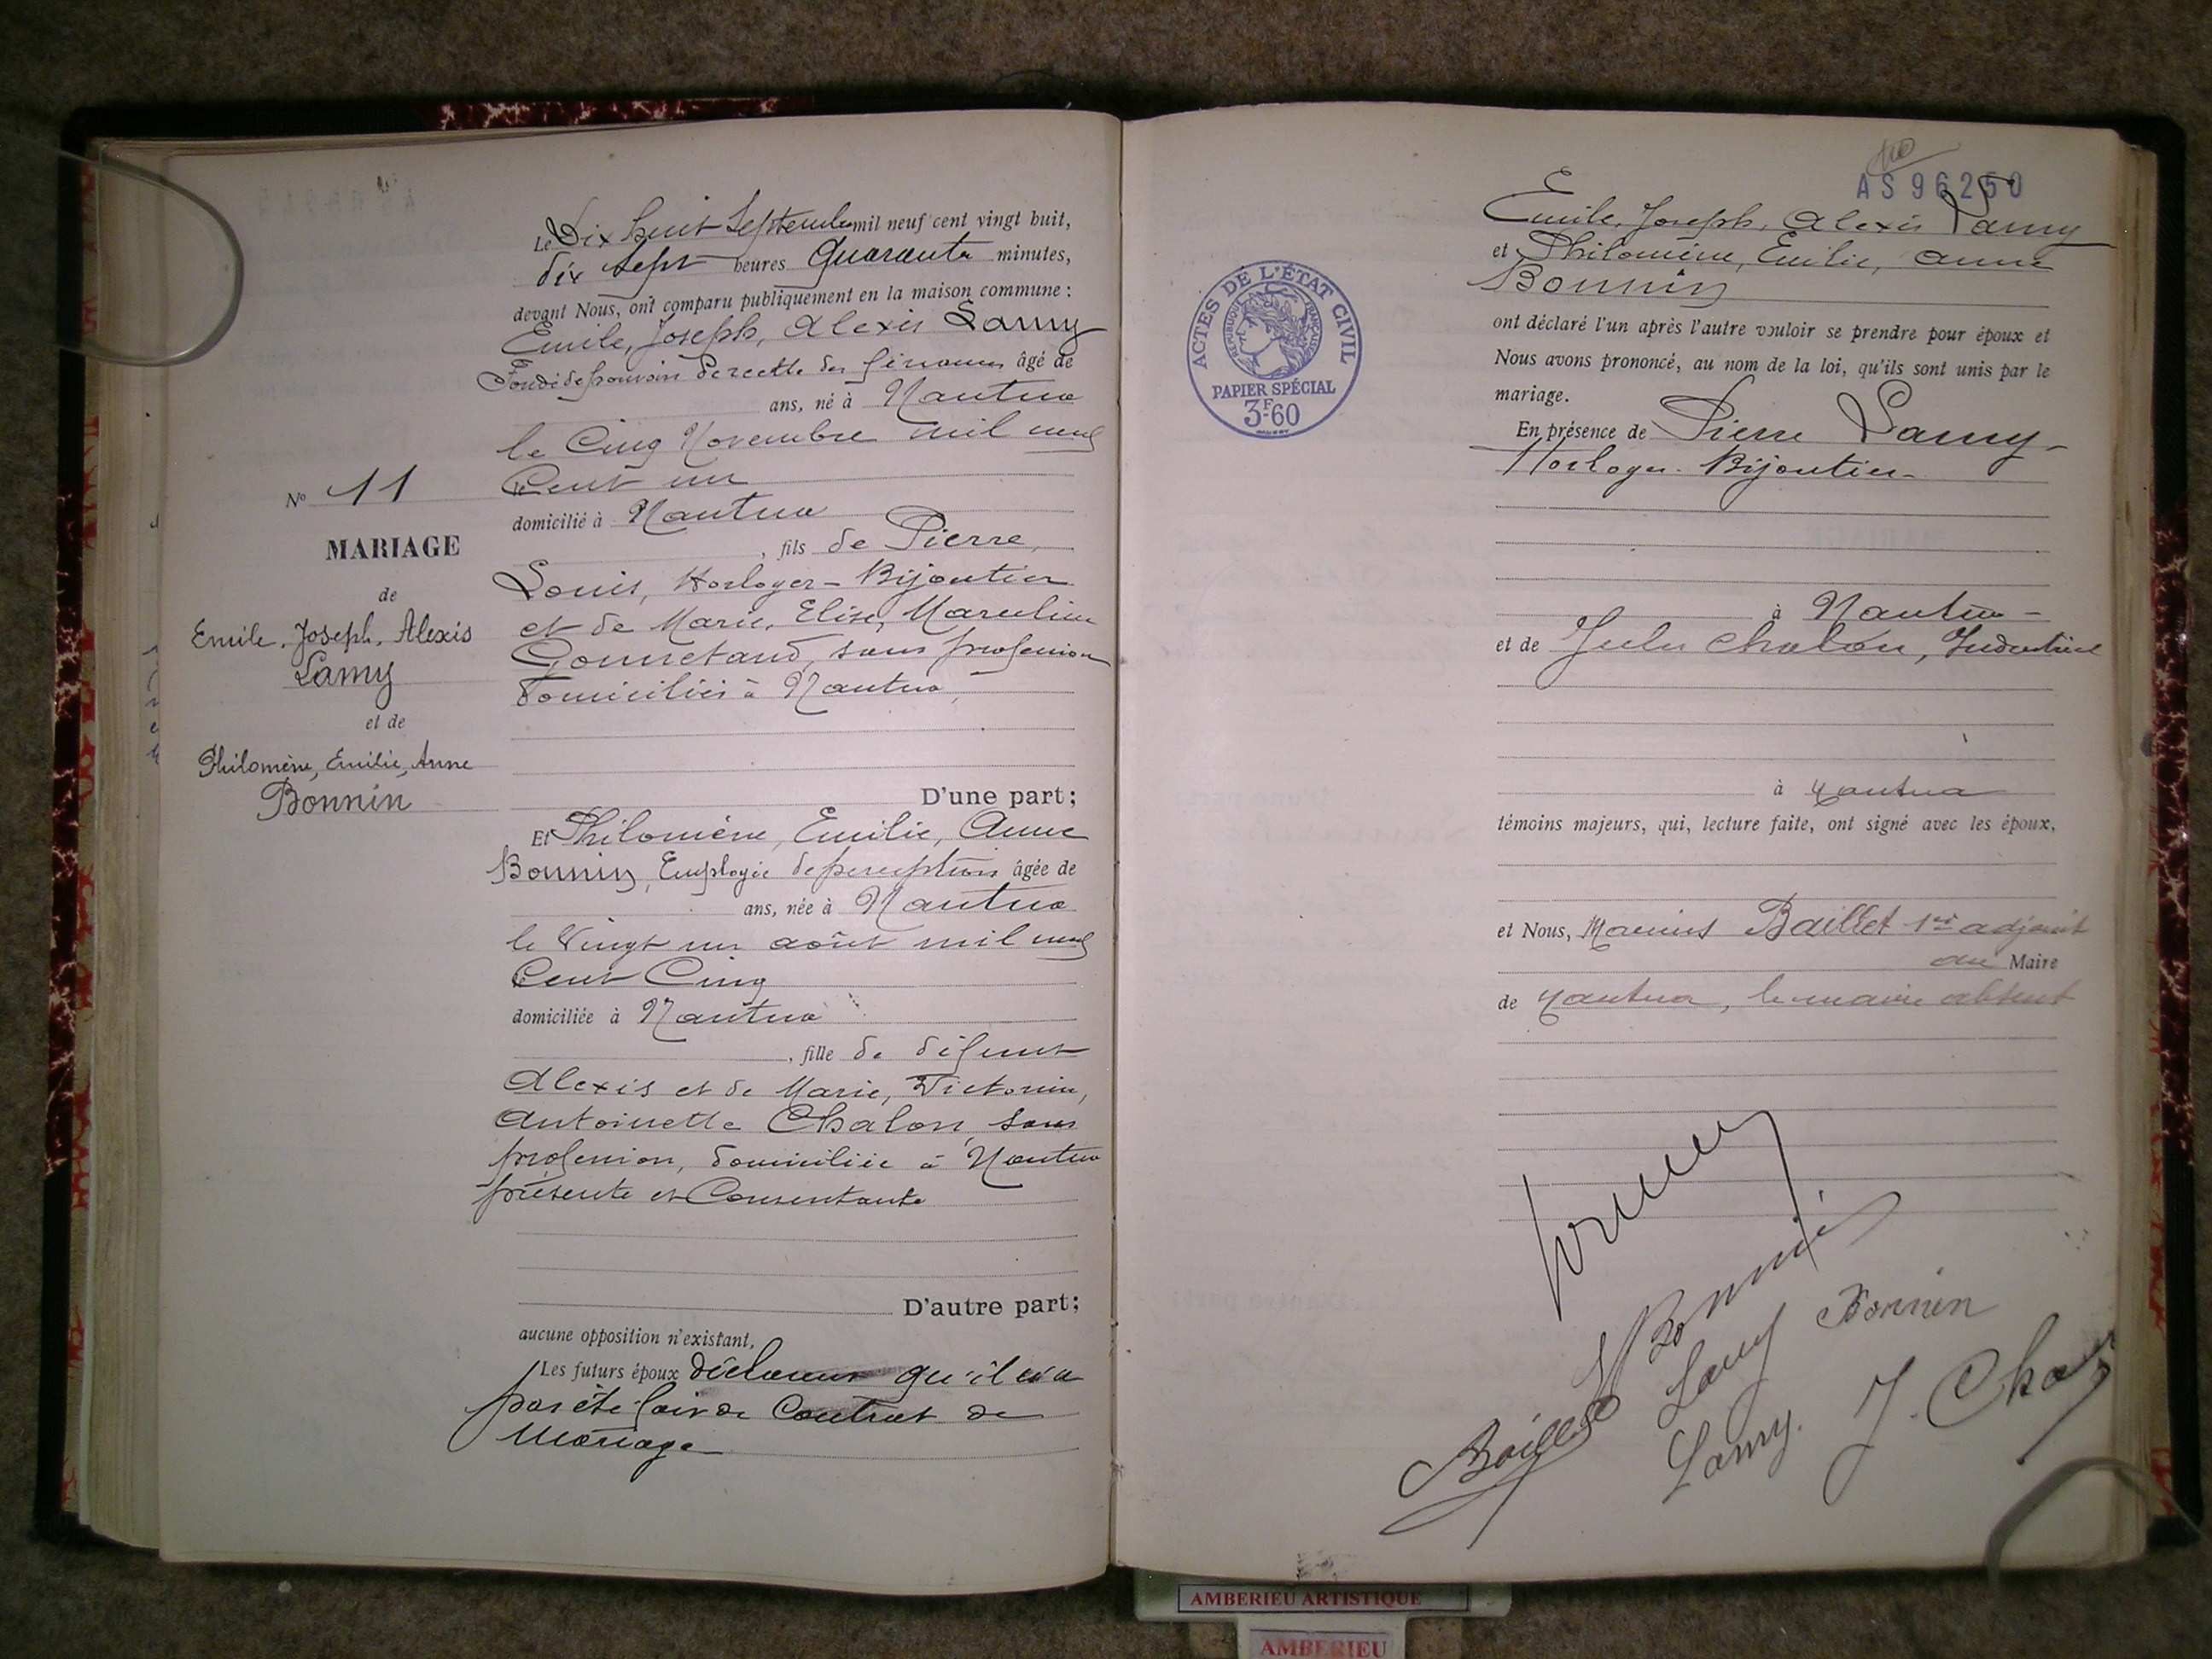 Le Dix huit Septembre mil neuf cent vingt huit,
dix sept heures Quarante minutes,
devant Nous, ont comparu publiquement en la maison commune :
Emile, Joseph, Alexis Lamy
Fondé de pouvoirs de recette des finances âgé de
ans, né à Nantua
le Cinq Novembre mil neuf
Cent un
domicilié à Nantua
, fils de Pierre,
Louis, Horloger-Bijoutier
et de Marie, Elise, Marceline
sans profession
domiciliés à Nantua,
D'une part;
No 11
MARIAGE
de
Emile, Joseph, Alexis
Lamy
et de
Philomène, Emilie, Anne
Bonnin
Et Philomène, Emilie, Anne
Bonnin, Employée de perception âgée de
ans, née à Nantua
le Vingt un août mil neuf
Cent Cinq
domiciliée à Nantua
, fille de défunt
Alexis et de Marie, Victorine,
Antoinette Chalon, sans
profession, domiciliée à Nantua
présente et Consentante
D'autre part;
aucune opposition n'existant,
Les futurs époux déclarent qu'il n'a
pas été fait de Contrat de
Mariage
AS 96250
Emile, Joseph, Alexis Lamy
et Philomène, Emilie, Anne
Bonnin
ont déclaré l'un après l'autre vouloir se prendre pour époux et
Nous avons prononcé, au nom de la loi, qu'ils sont unis par le
mariage.
En présence de Pierre Lamy-
Horloger-Bijoutier-
à Nantua-
et de Jules Chalon, Industriel
à Nantua
témoins majeurs, qui, lecture faite, ont signé avec les époux,
et Nous, Marius Baillet 1er adjoint
au Maire
de Nantua, le maire absent
ACTES DE L'ÉTAT CIVIL
RÉPUBLIQUE FRANÇAISE
PAPIER SPÉCIAL
3F.60
Bonnin
Lamy
Baillet
Lamy.
J. Chalon
AMBERIEU ARTISTIQUE
AMBERIEU